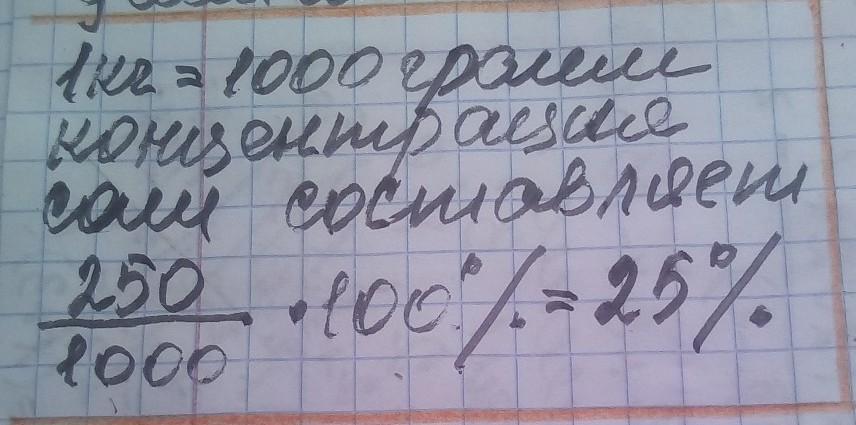 1кг = 1000 грамм
концентрация
соли составляет
250/1000 · 100% = 25%.